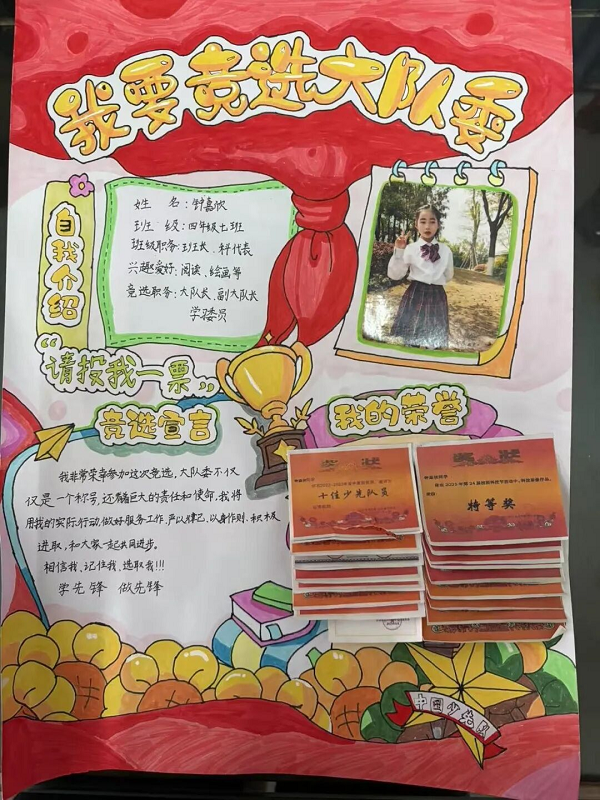 我要竞选大队委
自我介绍
姓 名:
班 级:四年级七班
班级职务:班长、科代表
兴趣爱好:阅读、绘画等
竞选职务:大队长、副大队长
学习委员
“请投我一票”
竞选宣言
我非常荣幸参加这次竞选,大队委不仅
仅是一个称号,还赋巨大的责任和使命,我将
用我的实际行动,做好服务工作,严以律己、以身作则、积极
进取,和大家一起共同进步。
相信我、记住我、选取我!!!
学先锋 做先锋
我的荣誉
奖状
十佳少先队员
奖状
特等奖
中国少先队